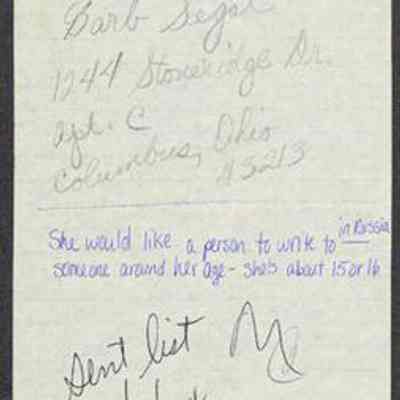 Barb Segal
1244 Stoneridge Dr.
apt. C
Columbus, Ohio
43213
in Russia
She would like a person to write to
someone around her age - she's about 15 or 16
Sent list